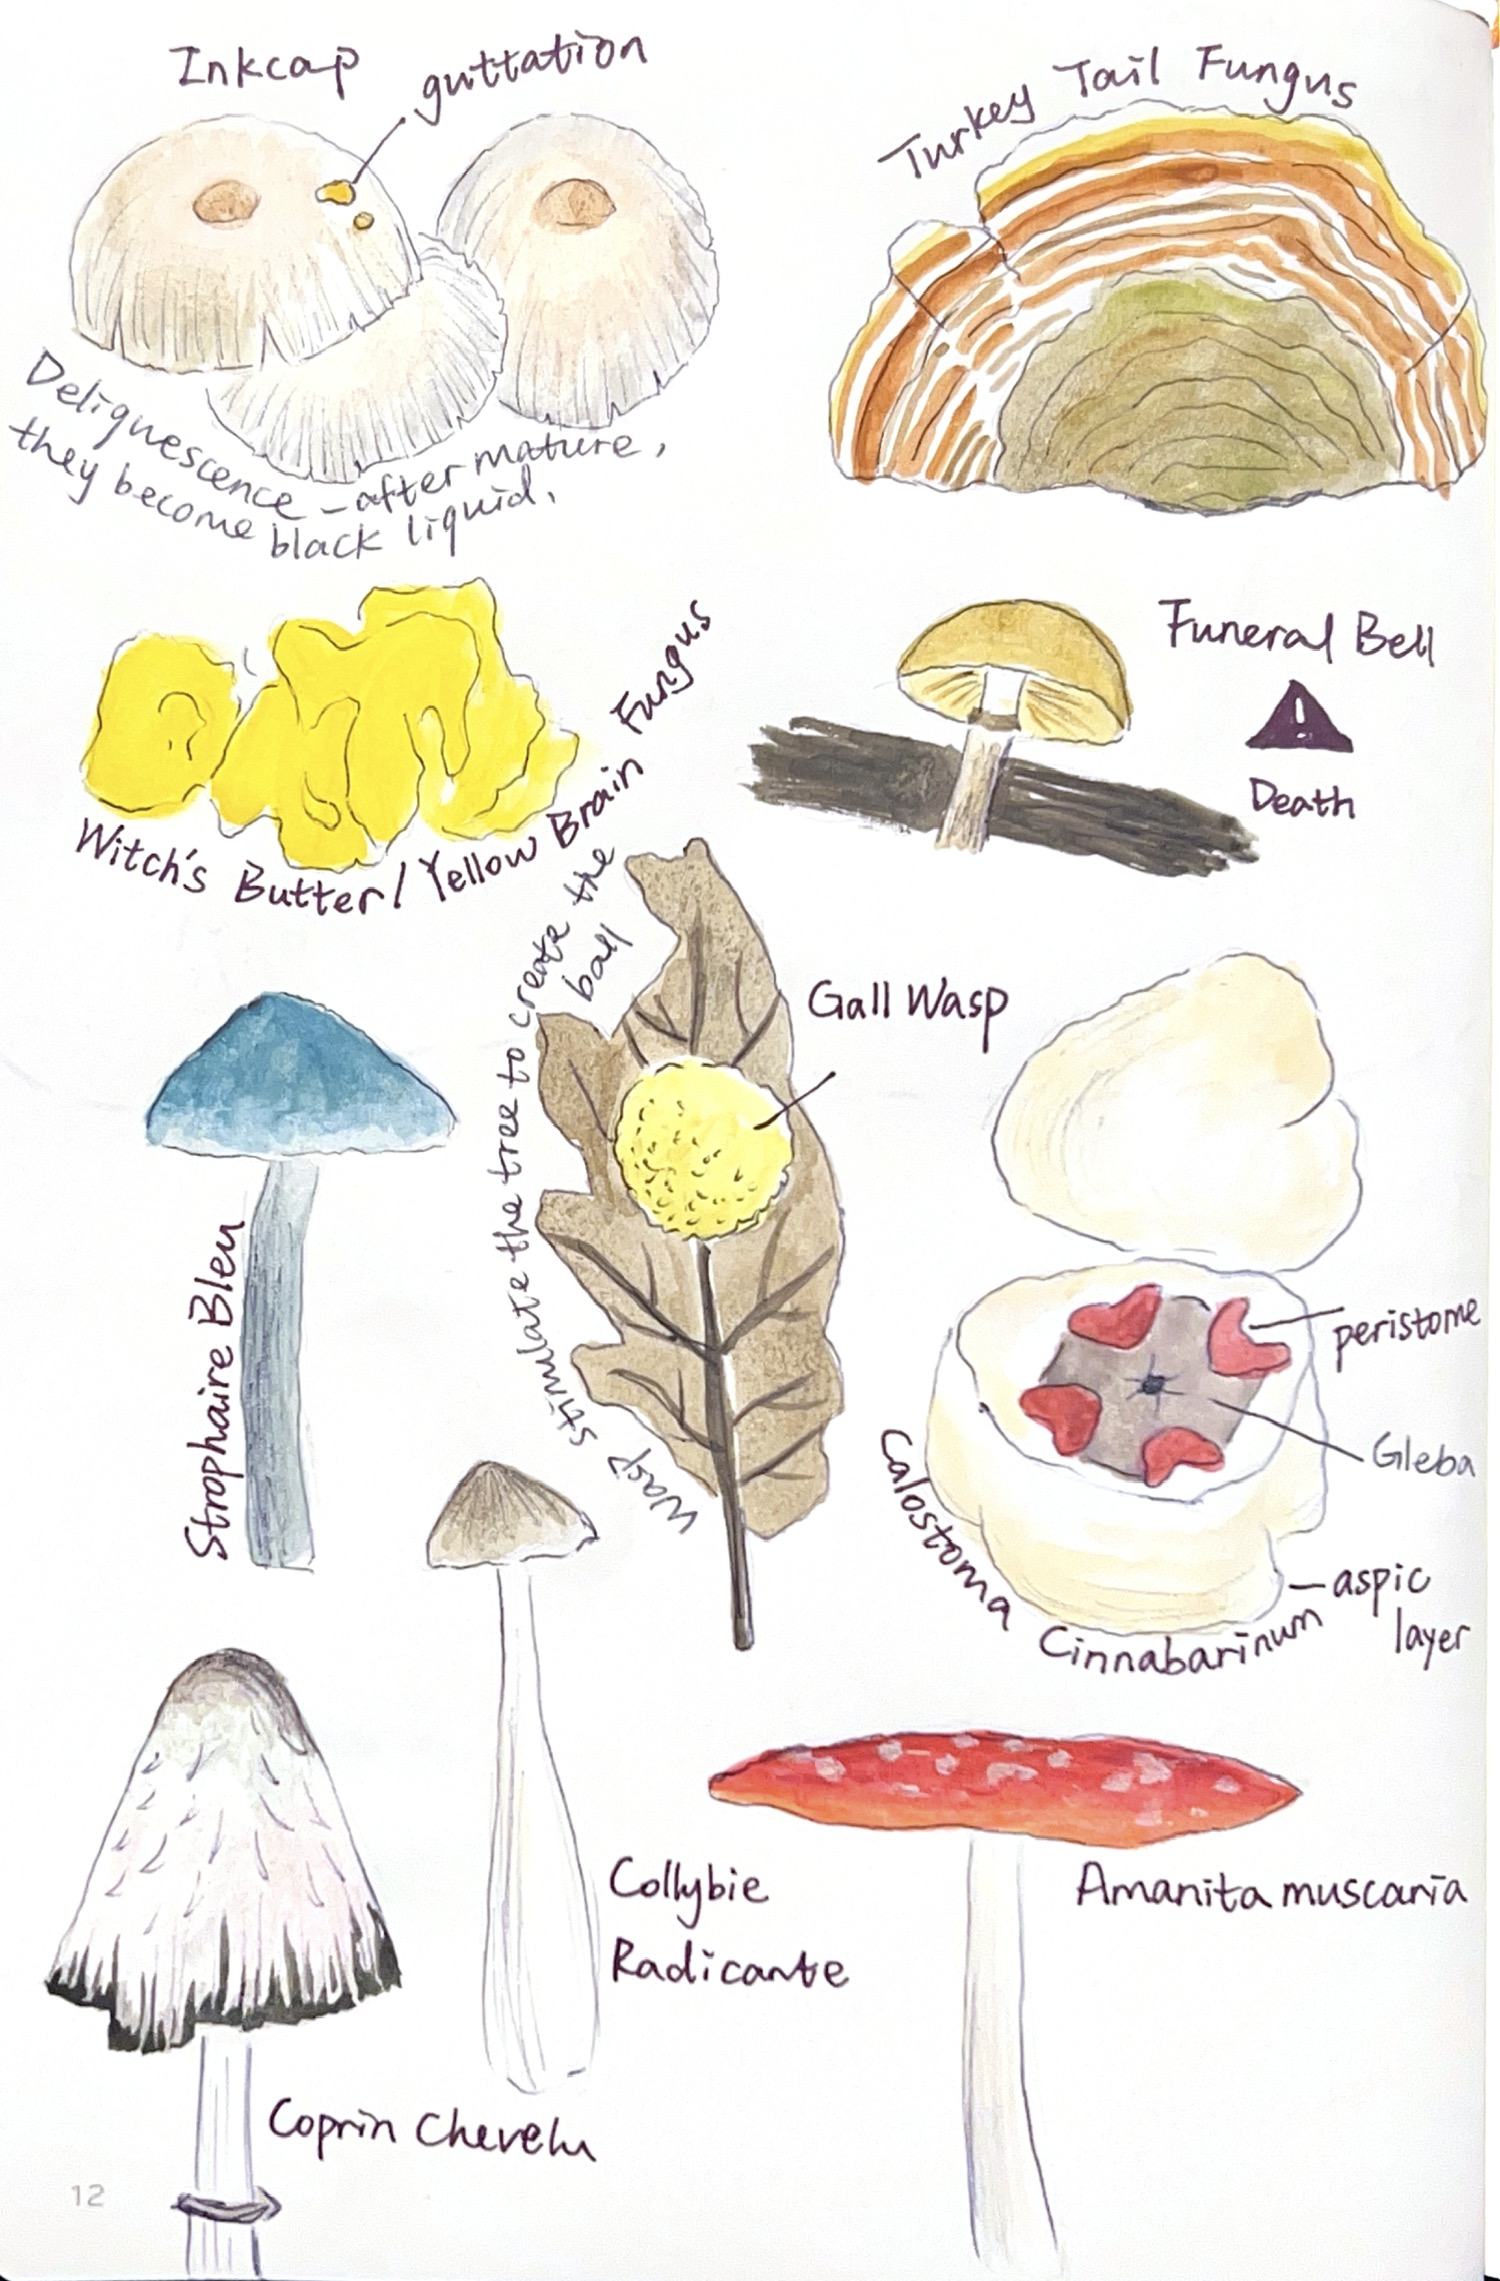 Inkcap
guttation
Turkey Tail Fungus
Deliquescence – after mature,
they become black liquid.
Witch's Butter / Yellow Brain Fungus
Funeral Bell
!
Death
Wasp stimulate the tree to create the
ball
Gall Wasp
Strophaire Bleu
peristome
Gleba
Calostoma Cinnabarinum
aspic
layer
Collybie
Radicante
Amanita muscaria
Coprin Chevelu
12